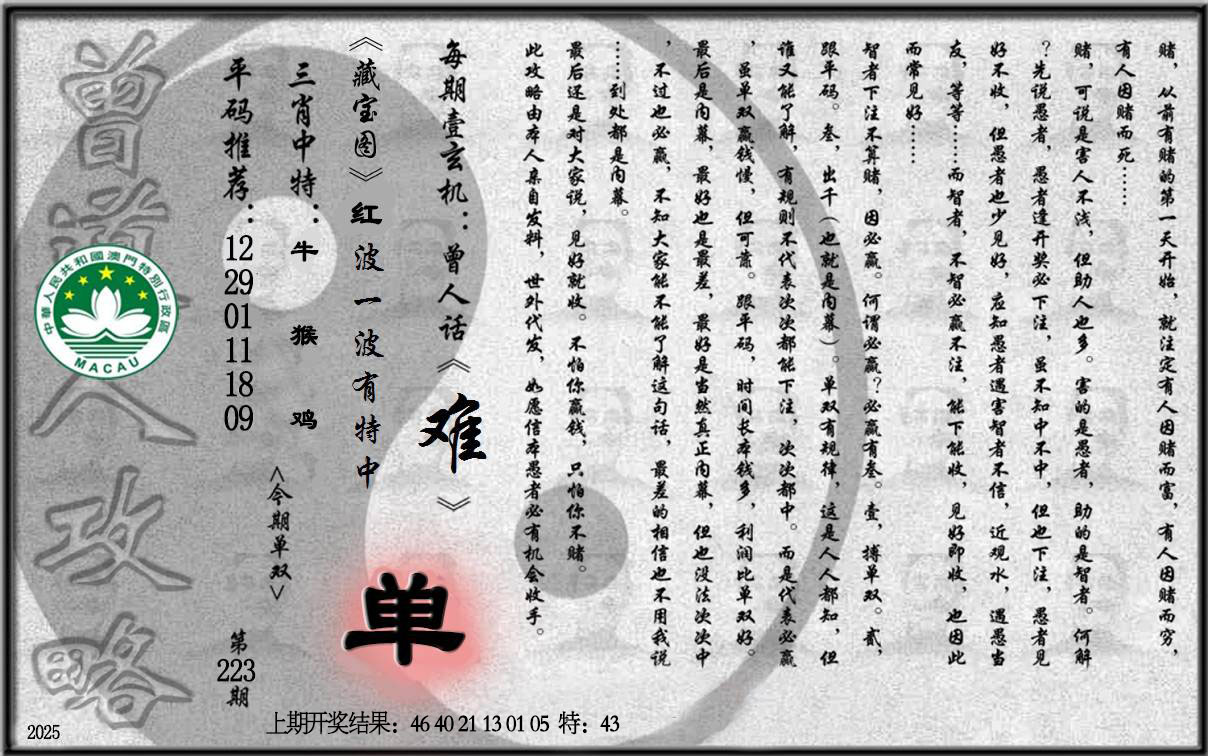 赌，从前有赌的第一天开始，就注定有人因赌而富，有人因赌而穷，
有人因赌而死……
赌，可说是害人不浅，但助人也多。害的是愚者，助的是智者。何解
？先说愚者，愚者逢开奖必下注，虽不知中不中，但也下注，愚者见
好不收，但愚者也少见好，应知愚者遇害智者不信，近观水，遇愚当
友，等等……而智者，不智必赢不注，能下能收，见好即收，也因此
而常见好……
智者下注不算赌，因必赢。何谓必赢？必赢有叁。壹，搏单双。贰，
跟平码。叁，出千（也就是内幕）。单双有规律，这是人人都知，但
谁又能了解，有规则不代表次次都能下注，次次都中。而是代表必赢
，虽单双赢钱慢，但可靠。跟平码，时间长本钱多，利润比单双好。
最后是内幕，最好也是最差，最好是当然真正内幕，但也没法次次中
，不过也必赢，不知大家能不能了解这句话，最差的相信也不用我说
……到处都是内幕。
最后还是对大家说，见好就收。不怕你赢钱，只怕你不赌。
此攻略由本人亲自发料，世外代发，如愿信本愚者必有机会收手。
每期壹玄机：曾人话《难》
《藏宝图》红波一波有特中
单
三肖中特：牛 猴 鸡
<今期单双>
平码推荐：12 29 01 11 18 09
第223期
曾道人攻略
中華人民共和國澳門特別行政區
MACAU
上期开奖结果：46 40 21 13 01 05 特：43
2025